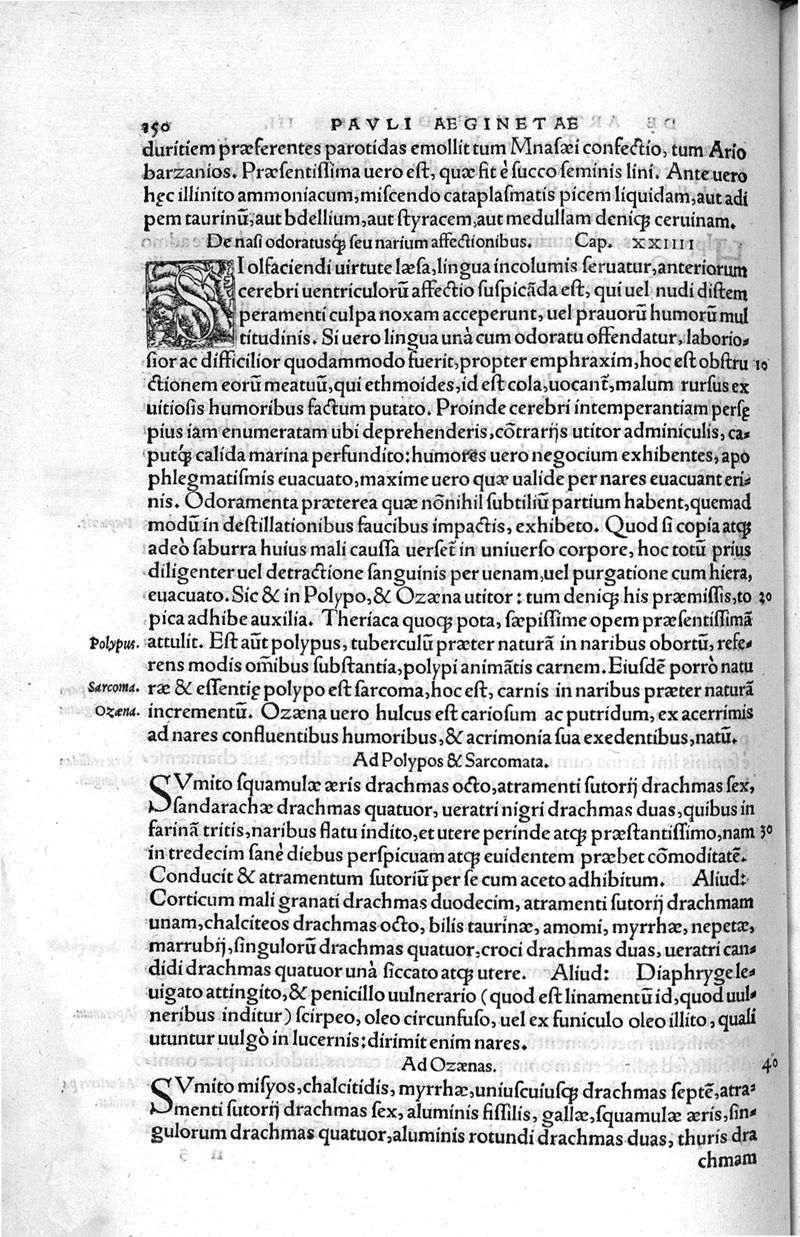 250 PAVLI AEGINETAE
duritiem præferentes parotidas emollit tum Mnasæi confectio, tum Ario
barzanios. Præsentissima uero est, quæ fit è succo seminis lini. Ante uero
hęc illinito ammoniacum, miscendo cataplasmatis picem liquidam, aut adi
pem taurinũ, aut bdellium, aut styracem, aut medullam deniqꝫ ceruinam.
De nasi odoratusqꝫ seu narium affectionibus. Cap. XXIIII
SI olfaciendi uirtute læsa, lingua incolumis seruatur, anteriorum
cerebri uentriculorũ affectio suspicãda est, qui uel nudi distem
peramenti culpa noxam acceperunt, uel prauorũ humorũ mul
titudinis. Si uero lingua unà cum odoratu offendatur, laborio-
sior ac difficilior quodammodo fuerit, propter emphraxim, hoc est obstru 10
ctionem eorũ meatuũ, qui ethmoides, id est cola, uocant᷑, malum rursus ex
uitiosis humoribus factum putato. Proinde cerebri intemperantiam persę
pius iam enumeratam ubi deprehenderis, cõtrarijs utitor adminiculis, ca-
putqꝫ calida marina perfundito: humores uero negocium exhibentes, apo
phlegmatismis euacuato, maxime uero quæ ualide per nares euacuant eri-
nis. Odoramenta præterea quæ nõnihil subtiliũ partium habent, quemad
modũ in destillationibus faucibus impactis, exhibeto. Quod si copia atqꝫ
adeò saburra huius mali caussa uerset᷑ in uniuerso corpore, hoc totũ prius
diligenter uel detractione sanguinis per uenam, uel purgatione cum hiera,
euacuato. Sic & in Polypo, & Ozæna utitor: tum deniqꝫ his præmissis, to 20
pica adhibe auxilia. Theriaca quoqꝫ pota, sæpissime opem præsentissimã
Polypus. attulit. Est aũt polypus, tuberculũ præter naturã in naribus obortũ, refe-
rens modis om̃ibus substantia, polypi animãtis carnem. Eiusdẽ porrò natu
Sarcoma. ræ & essentię polypo est sarcoma, hoc est, carnis in naribus præter naturã
Ozæna. incrementũ. Ozæna uero hulcus est cariosum ac putridum, ex acerrimis
ad nares confluentibus humoribus, & acrimonia sua exedentibus, natũ.
Ad Polypos & Sarcomata.
SVmito squamulæ æris drachmas octo, atramenti sutorij drachmas sex,
sandarachæ drachmas quatuor, ueratri nigri drachmas duas, quibus in
farinã tritis, naribus flatu indito, et utere perinde atqꝫ præstantissimo, nam 30
in tredecim sanè diebus perspicuam atqꝫ euidentem præbet cõmoditatẽ.
Conducit & atramentum sutoriũ per se cum aceto adhibitum. Aliud:
Corticum mali granati drachmas duodecim, atramenti sutorij drachmam
unam, chalciteos drachmas octo, bilis taurinæ, amomi, myrrhæ, nepetæ,
marrubij, singulorũ drachmas quatuor, croci drachmas duas, ueratri can-
didi drachmas quatuor unà siccato atqꝫ utere. Aliud: Diaphryge le-
uigato attingito, & penicillo uulnerario (quod est linamentũ id, quod uul-
neribus inditur) scirpeo, oleo circunfuso, uel ex funiculo oleo illito, quali
utuntur uulgò in lucernis: dirimit enim nares.
Ad Ozænas. 40
SVmito misyos, chalcitidis, myrrhæ, uniuscuiusqꝫ drachmas septẽ, atra-
menti sutorij drachmas sex, aluminis fissilis, gallæ, squamulæ æris, sin-
gulorum drachmas quatuor, aluminis rotundi drachmas duas, thuris dra
chmam